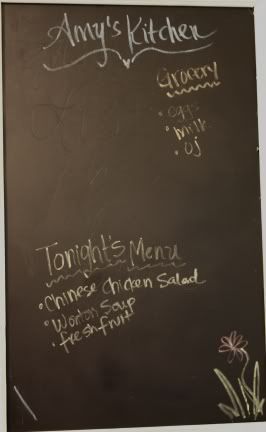 Amy's Kitchen
Grocery
• eggs
• milk
• oj
Tonight's Menu
• Chinese Chicken Salad
• Wonton Soup
• fresh fruit